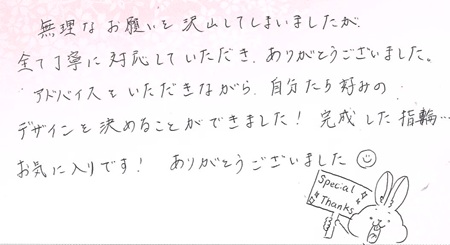 無理なお願いを沢山してしまいましたが、
全て丁寧に対応していただき、ありがとうございました。
アドバイスをいただきながら、自分たち好みの
デザインを決めることができました！ 完成した指輪…
お気に入りです！ ありがとうございました☺
Special
Thanks